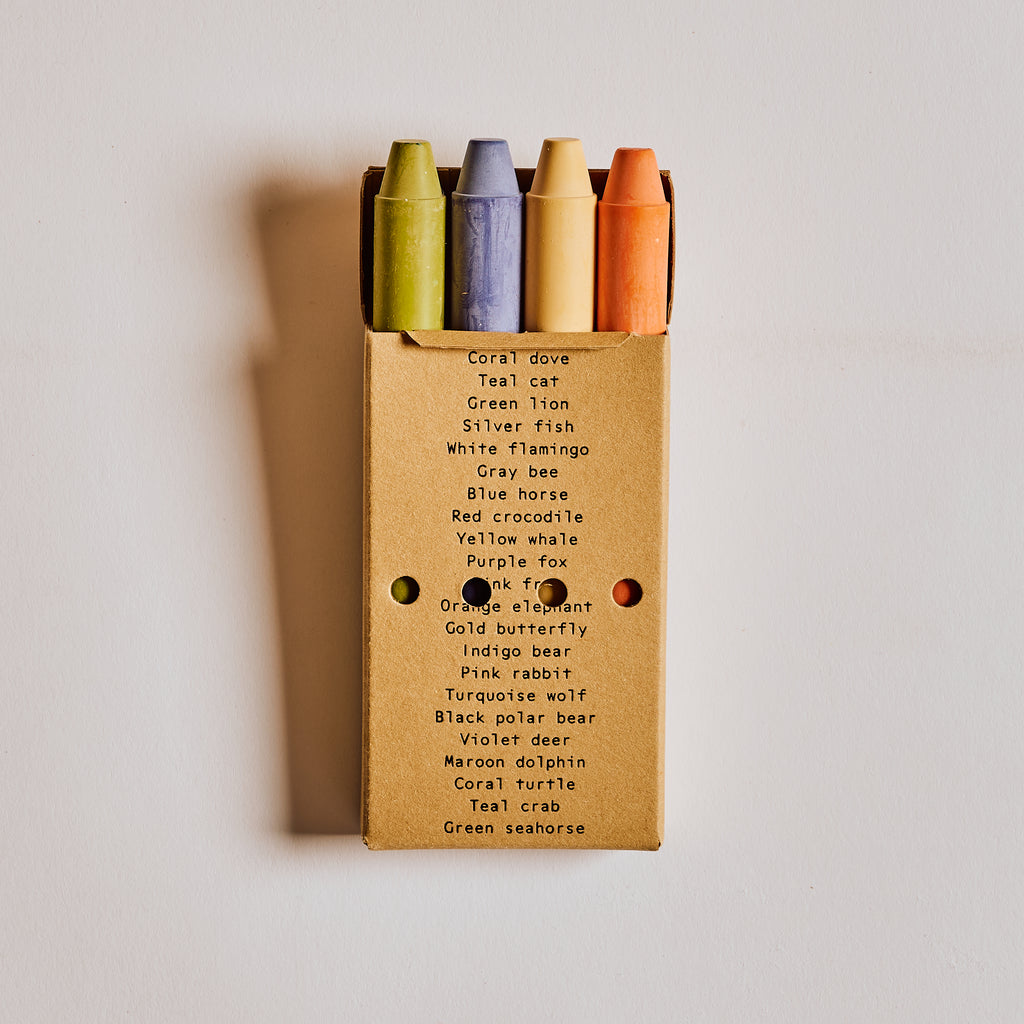 Coral dove
Teal cat
Green lion
Silver fish
White flamingo
Gray bee
Blue horse
Red crocodile
Yellow whale
Purple fox
Orange elephant
Gold butterfly
Indigo bear
Pink rabbit
Turquoise wolf
Black polar bear
Violet deer
Maroon dolphin
Coral turtle
Teal crab
Green seahorse